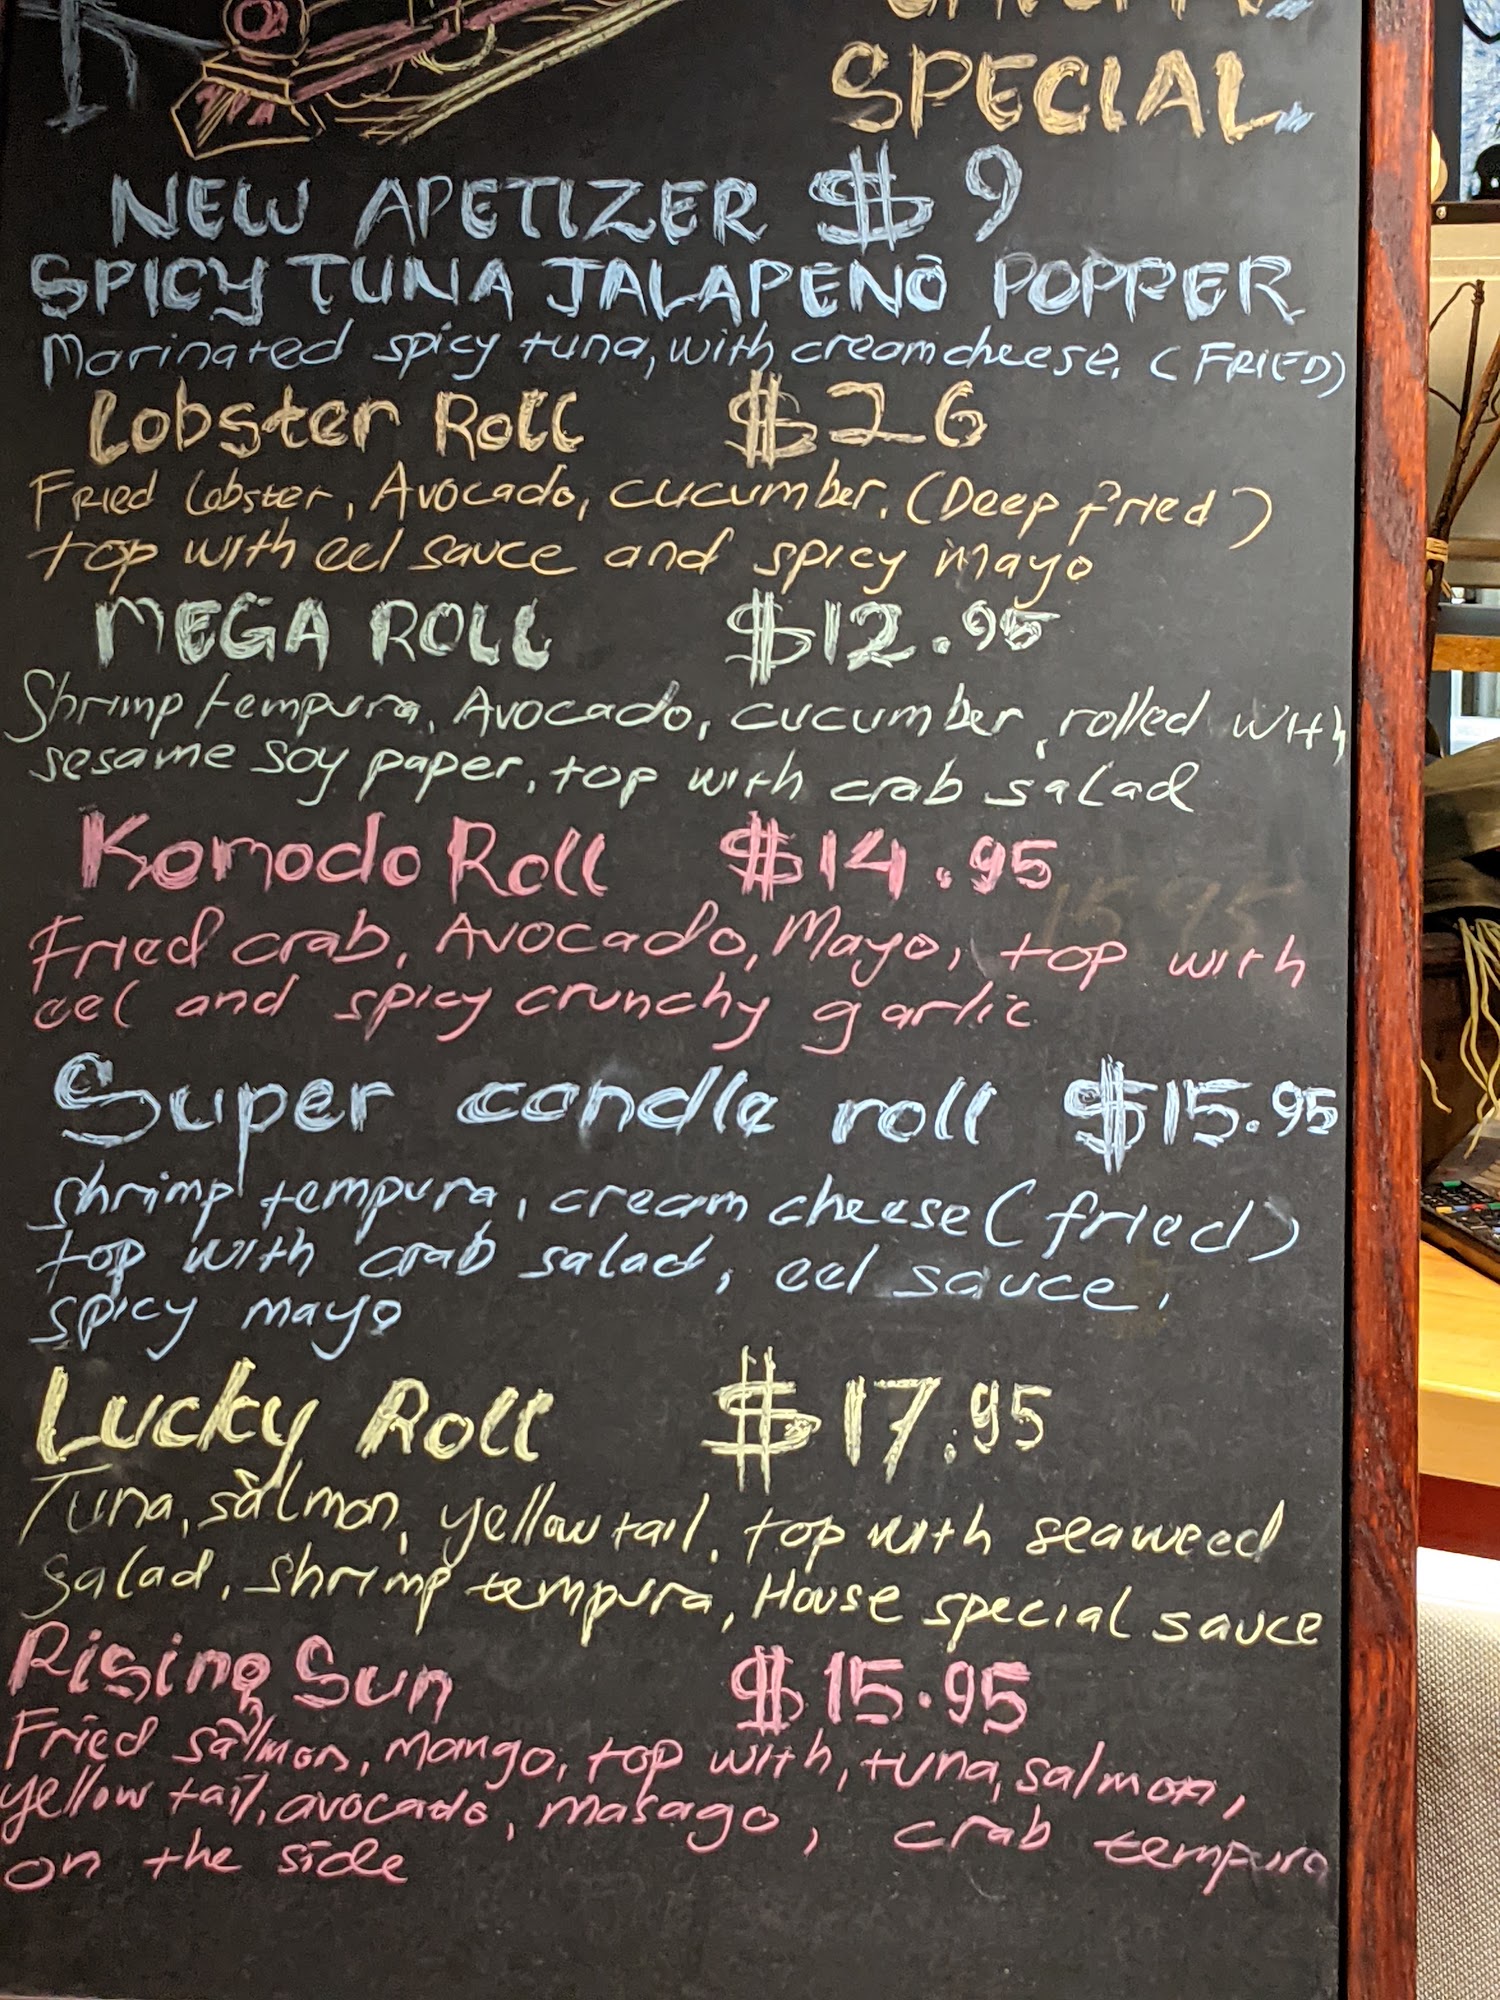 SPECIAL
NEW APETIZER $9
SPICY TUNA JALAPENO POPPER
Marinated spicy tuna, with cream cheese. (FRIED)
Lobster Roll $26
Fried lobster, Avocado, cucumber. (Deep fried)
top with eel sauce and spicy mayo
MEGA ROLL $12.95
Shrimp tempura, Avocado, cucumber, rolled with
sesame soy paper, top with crab salad
Komodo Roll $14.95
15.95
Fried crab, Avocado, Mayo, top with
eel and spicy crunchy garlic
Super candle roll $15.95
shrimp tempura, cream cheese (fried)
top with crab salad, eel sauce,
spicy mayo
Lucky Roll $17.95
Tuna, salmon, yellow tail, top with seaweed
salad, shrimp tempura, House special sauce
Rising Sun $15.95
Fried salmon, mango, top with, tuna, salmon,
yellow tail, avocado, masago, crab tempura
on the side